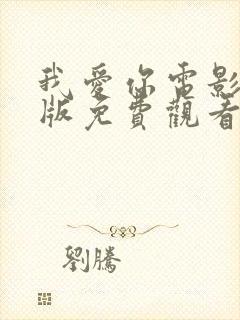 我愛你電影
版免費觀看
劉騰